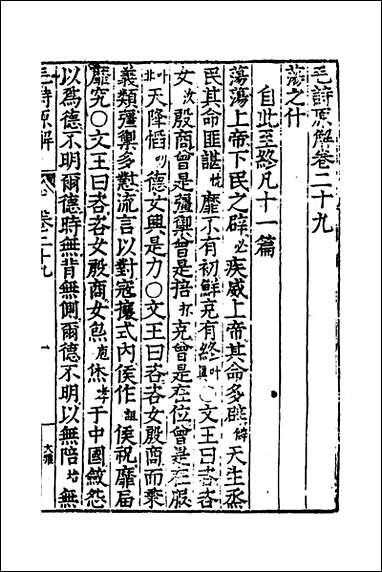 毛詩原解卷二十九
蕩之什
自此至終凡十一篇
蕩蕩上帝下民之辟必疾威上帝其命多辟僻天生烝
民其命匪諶忱靡不有初鮮克有終叶○文王曰咨咨
女汝殷商曾是彊禦曾是掊克曾是在位曾是在服
叶北天降慆叨德女興是力○文王曰咨咨女殷商而秉
義類彊禦多懟流言以對寇攘式內侯作詛侯祝靡屆
靡究○文王曰咨咨女殷商女炰庖烋孝于中國斂怨
以爲德不明爾德時無背無側爾德不明以無陪培無
毛詩原解 卷二十九 一 大雅